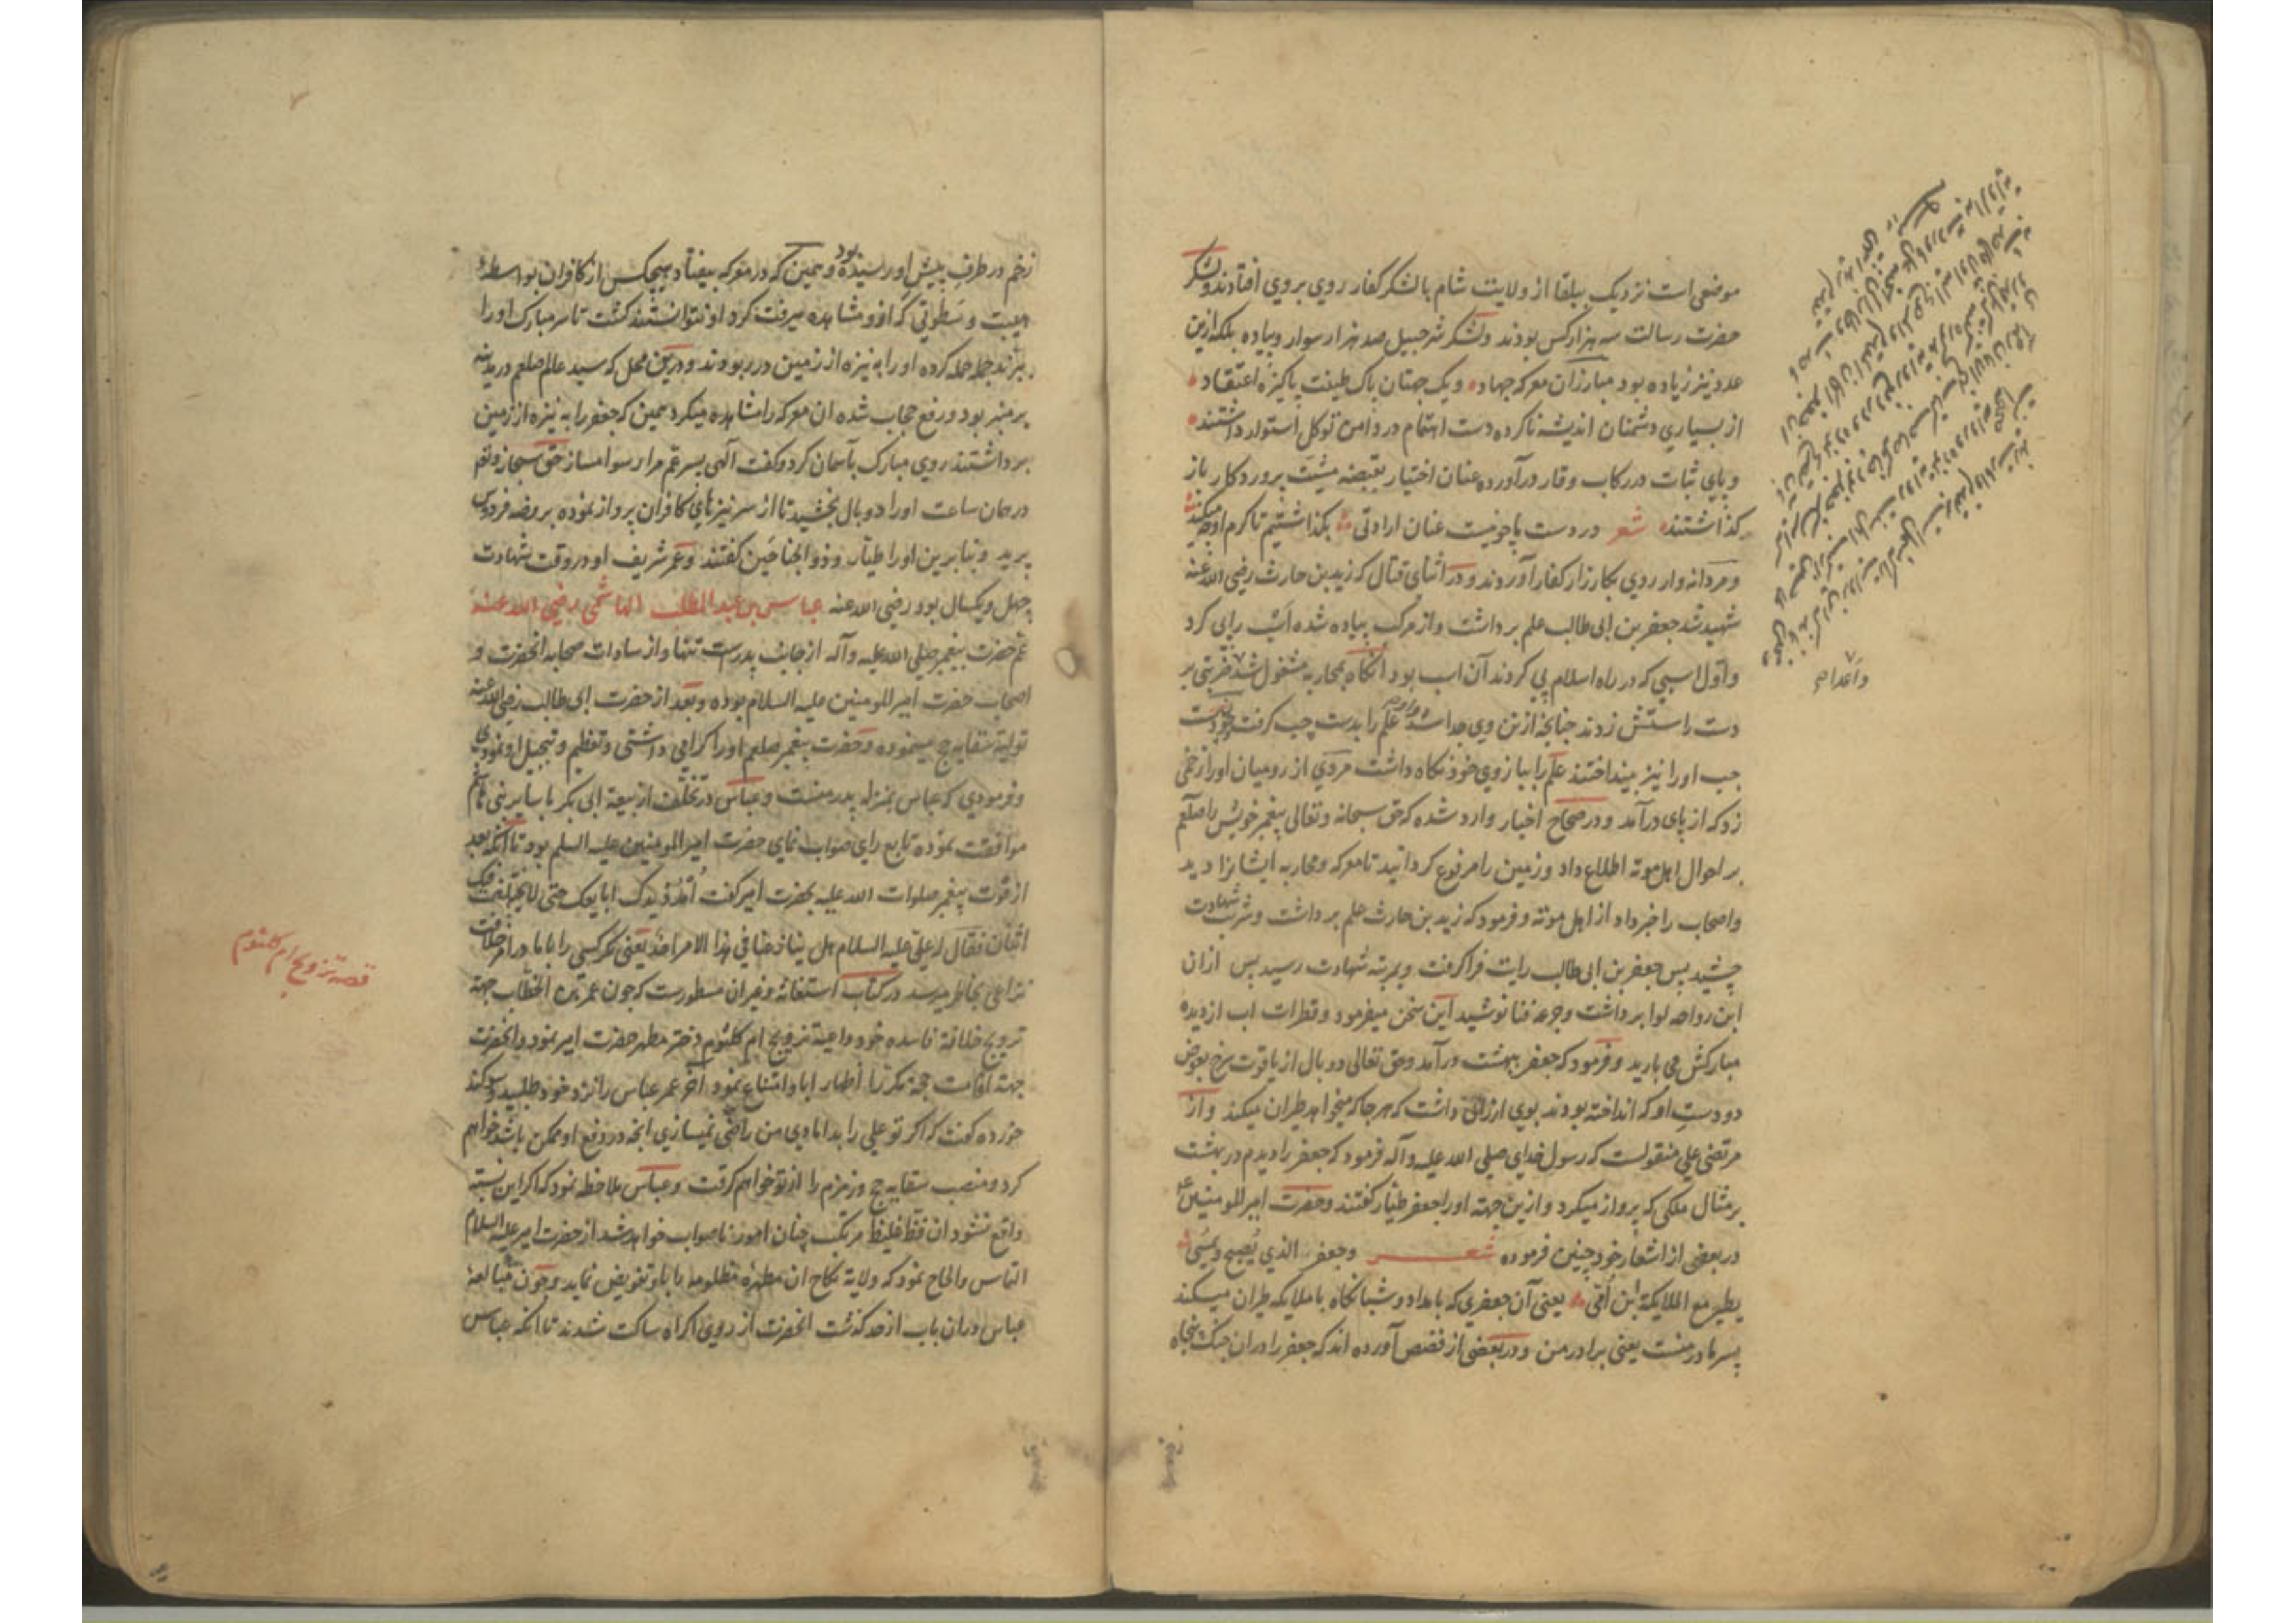 موضعی است نزدیک ببلقا از ولایت شام بالشکر کفار روی بروی افتادند ولشکر
حضرت رسالت سه هزار کس بودند ولشکر شرحبیل صد هزار سوار وپیاده بلکه ازین
عدد نیز زیاده بود مبارزان معرکه جهاد ویک جهتان پاک طینت پاکیزه اعتقاد
از بسیاری دشمنان اندیشه ناکرده دست اعتصام در دامن توکل استوار داشتند
وپای ثبات در رکاب وقار درآورده عنان اختیار بقبضه مشیت پروردکار باز
کذاشتند شعر در دست ما چو نیست عنان ارادتی بکذاشتیم تا کرم او چه میکند
ومردانه وار روی بکارزار کفار آوردند ودر اثنای قتال که زید بن حارث رضی الله عنه
شهید شد جعفر بن ابی طالب علم برداشت واز مرکب پیاده شده اسب را پی کرد
واول اسپی که در راه اسلام پی کردند آن اسب بود آنکاه بمحاربه مشغول شد ضربتی بر
دست راستش زدند چنانچه از تن وی جدا شد علم را بدست چپ کرفت چون دست
چپ او را نیز بینداختند علم را ببازوی خود نکاه داشت مردی از رومیان او را زخمی
زد که از پای درآمد ودر صحاح اخبار وارد شده که حق سبحانه وتعالی پیغمبر خویش را صلعم
بر احوال اهل موته اطلاع داد وزمین را مرفوع کردانید تا معرکه ومحاربه ایشانرا دید
واصحاب را خبر داد از اهل موته وفرمود که زید بن حارث علم برداشت وشربت شهادت
چشید پس جعفر بن ابی طالب رایت فرا کرفت وبمرتبه شهادت رسید پس ازان
ابن رواحه لوا برداشت وجرعه فنا نوشید این سخن میفرمود وقطرات اب از دیده
مبارکش می بارید وفرمود که جعفر ببهشت درآمد وحق تعالی دو بال از یاقوت سرخ بعوض
دو دست او که انداخته بودند بوی ارزانی داشت که هر جا که میخواهد طیران میکند واز
مرتضی علی منقولست که رسول خدای صلی الله علیه وآله فرمود که جعفر را دیدم در بهشت
بر مثال ملکی که پرواز میکرد وازین جهته او را جعفر طیار کفتند وحضرت امیر المومنین
در بعضی از اشعار خود چنین فرموده شعر وجعفر الذی یصبح ویمسی
یطیر مع الملایکة ابن امی یعنی آن جعفری که بامداد وشبانکاه با ملایکه طیران میکند
پسر مادر منست یعنی برادر من ودر بعضی از قصص آورده اند که جعفر را دران جنک پنجاه
زخم در طرف پیش او رسیده بود وهمین که در معرکه بیفتاد هیچکس از کافران بواسطه
هیبت وسطوتی که ازو مشاهده میرفت کرد او نتوانستند کشت تا سر مبارک او را
ببرند حمله کرده او را به نیزه از زمین در ربودند ودرین محل که سید عالم صلعم در مدینه
بر منبر بود ورفع حجاب شده ان معرکه را مشاهده میکرد همین که جعفر را به نیزه از زمین
برداشتند روی مبارک بآسمان کرد وکفت آلهی پسر عم مرا رسوا مساز حق سبحانه وتعالی
در همان ساعت او را دو بال بخشید تا از سر نیزهای کافران پرواز نموده بروضه فردوس
پرید وبنابرین او را طیار وذو الجناحین کفتند وعمر شریف او در وقت شهادت
چهل ویکسال بود رضی الله عنه عباس بن عبد المطلب الهاشمی رضی الله عنه
عم حضرت پیغمبر صلی الله علیه وآله از جانب پدرست تنها واز سادات صحابه انحضرت و
اصحاب حضرت امیر المومنین علیه السلام بوده وبعد از حضرت ابی طالب رضی الله عنه
تولیة سقایه حج مینموده وحضرت پیغمبر صلعم او را کرامی داشتی وتعظیم وتبجیل او نمودی
وفرمودی که عباس بمنزله پدر منست وعباس در تخلف از بیعة ابی بکر با سایر بنی هاشم
موافقت نموده تابع رای صواب نمای حضرت امیر المومنین علیه السلم بود تا آنکه بعد
از فوت پیغمبر صلوات الله علیه بحضرت امیر کفت امدد یدک ابایعک حتی لا یختلف فیک
اثنان فقال له علی علیه السلام هل ینازعنا فی هذا الامر احد یعنی مکر کسی را با ما در امر خلافت
نزاعی بخاطر میرسد در کتاب استغاثه وغیران مسطورست که چون عمر بن الخطاب جهة
ترویج خلافة فاسده خود داعیه تزویج ام کلثوم دختر مطهر حضرت امیر نمود وانحضرت
جهة اقامت حجة مکررا اظهار ابا وامتناع نمود اخر عمر عباس را نزد خود طلبید وسوکند
خورده کفت که اکر تو علی را بدامادی من راضی نمیسازی انچه در دفع او ممکن باشد خواهم
کرد ومنصب سقایه حج وزمزم را از تو خواهم کرفت وعباس ملاحظه نمود که اکر این نسبة
واقع نشود ان فظ غلیظ مرتکب چنان امور ناصواب خواهد شد از حضرت امیر علیه السلام
التماس والحاح نمود که ولایة نکاح ان مطهره مظلومه را باو تفویض نماید وچون مبالغه
عباس دران باب از حد کذشت انحضرت از روی اکراه ساکت شدند تا انکه عباس
قصه تزویج ام کلثوم